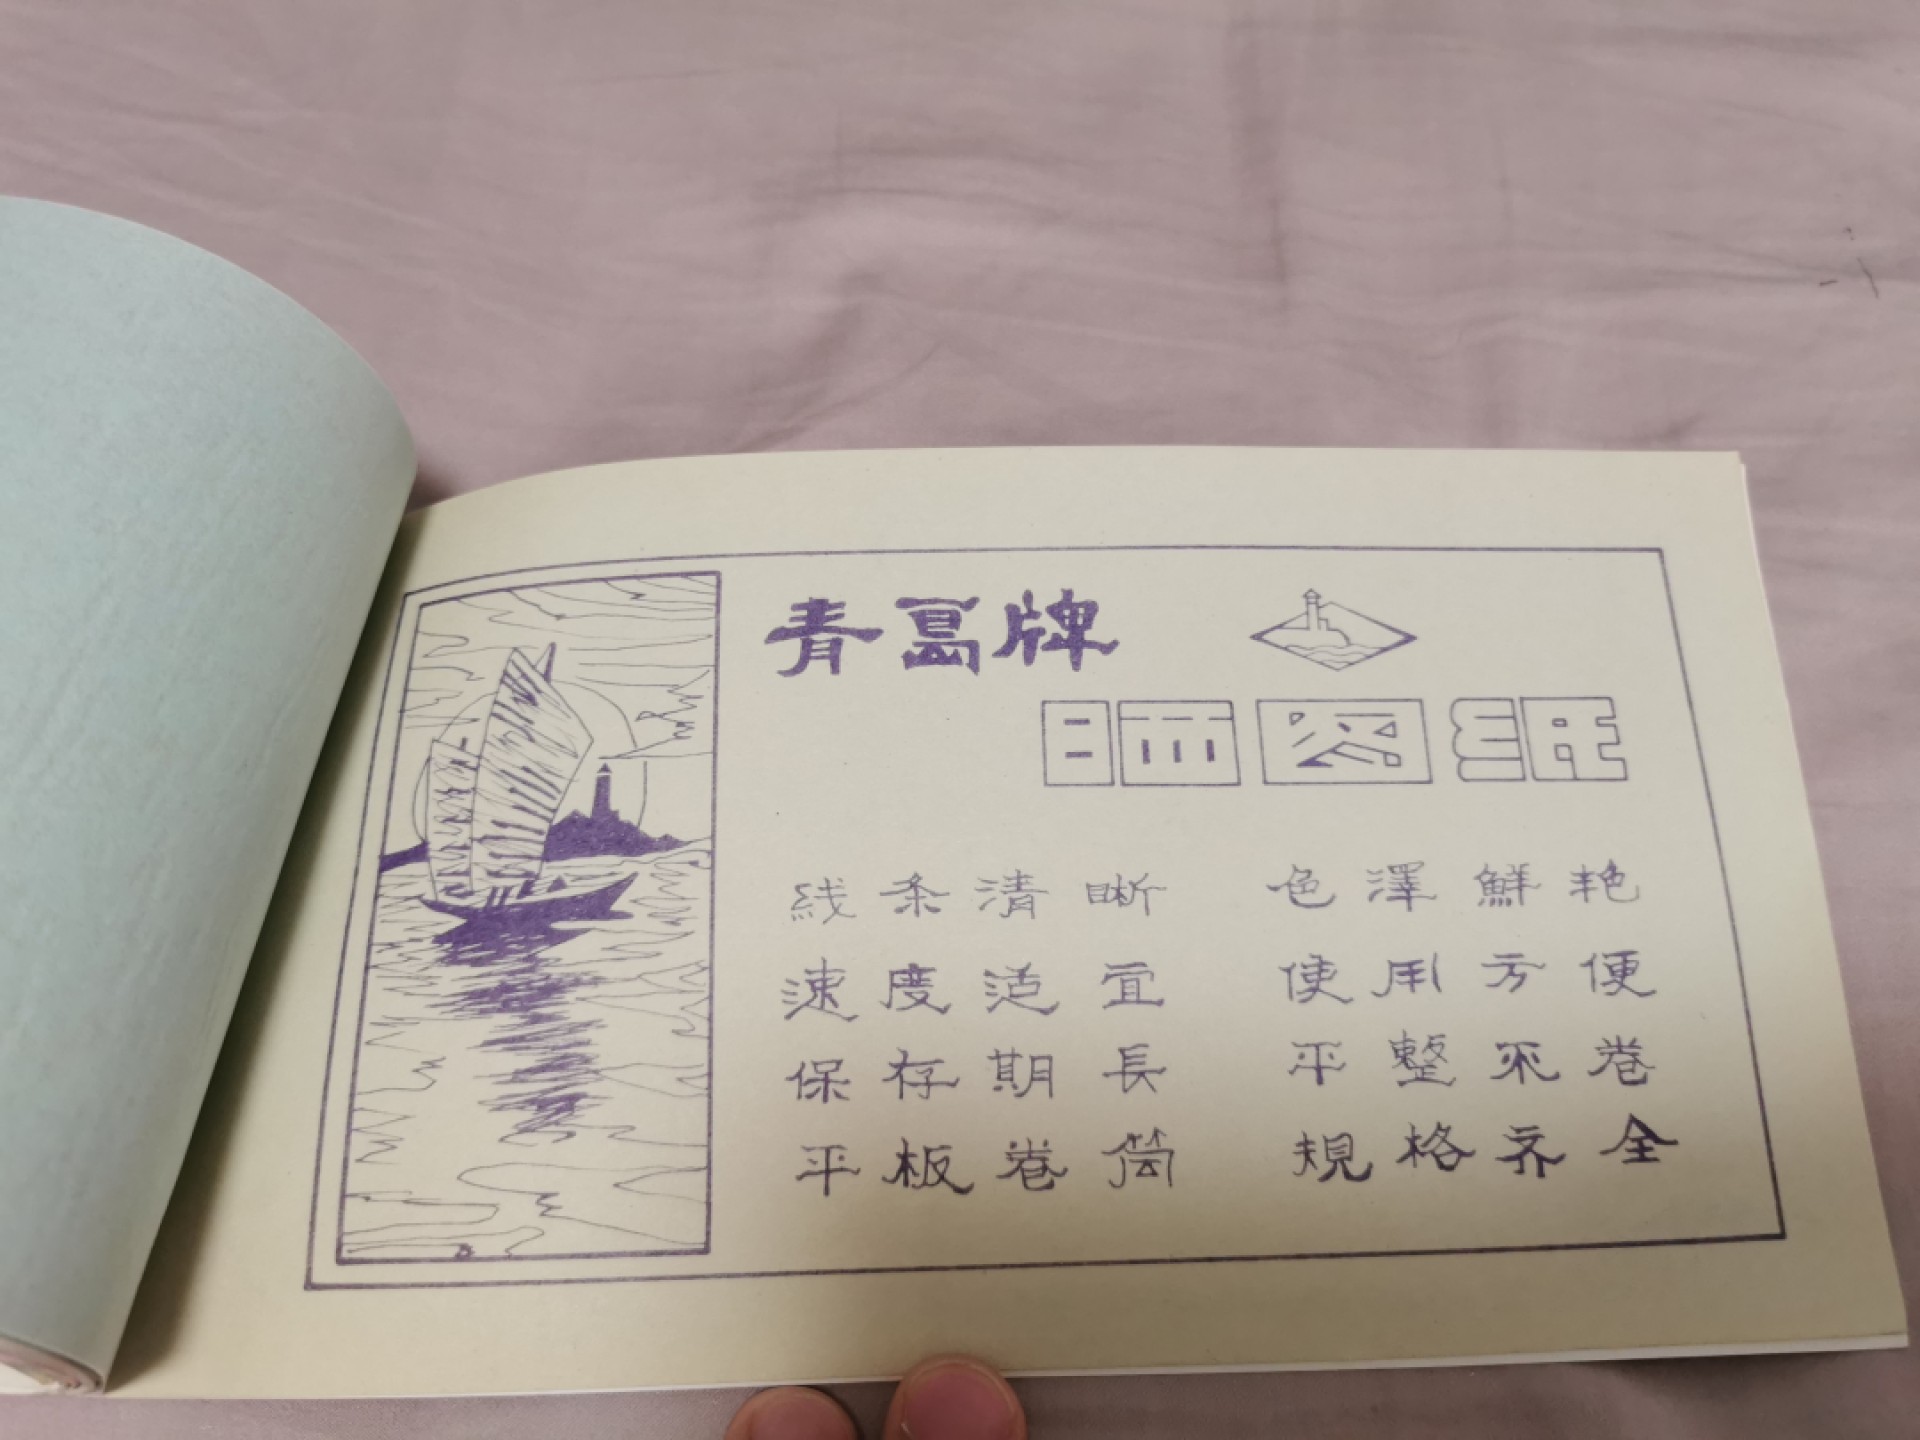 青島牌
晒图纸
线条清晰 色澤鮮艳
速度适宜 使用方便
保存期長 平整不卷
平板卷筒 規格齐全